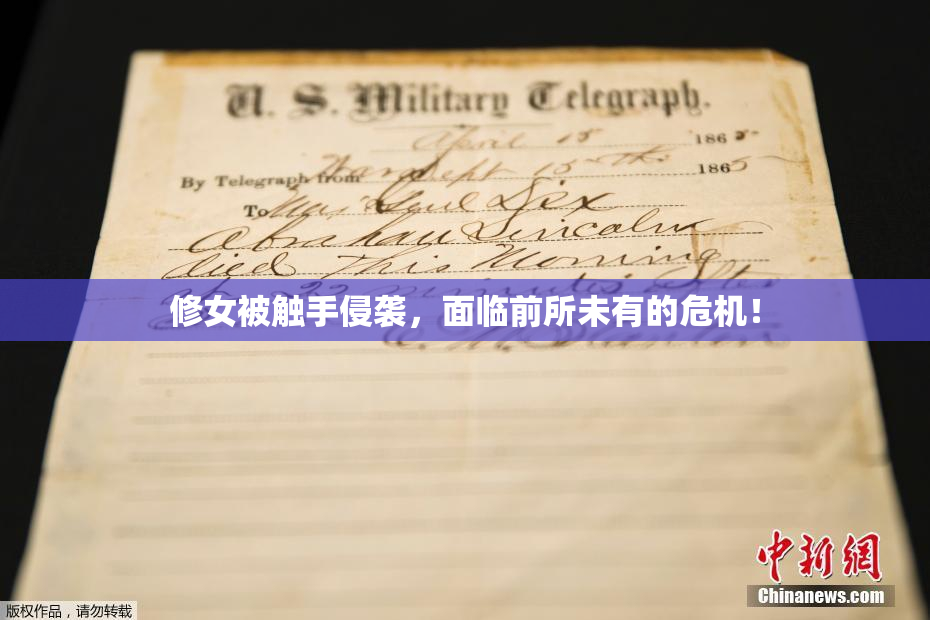 U. S. Military Telegraph.
April 15 1865
By Telegraph from War Dept 15th 1865
To Maj Genl Dix
Abraham Lincoln
died This Morning
at 22 minutes after
修女被触手侵袭，面临前所未有的危机！
E. M. Stanton
中新網
Chinanews.com
版权作品，请勿转载